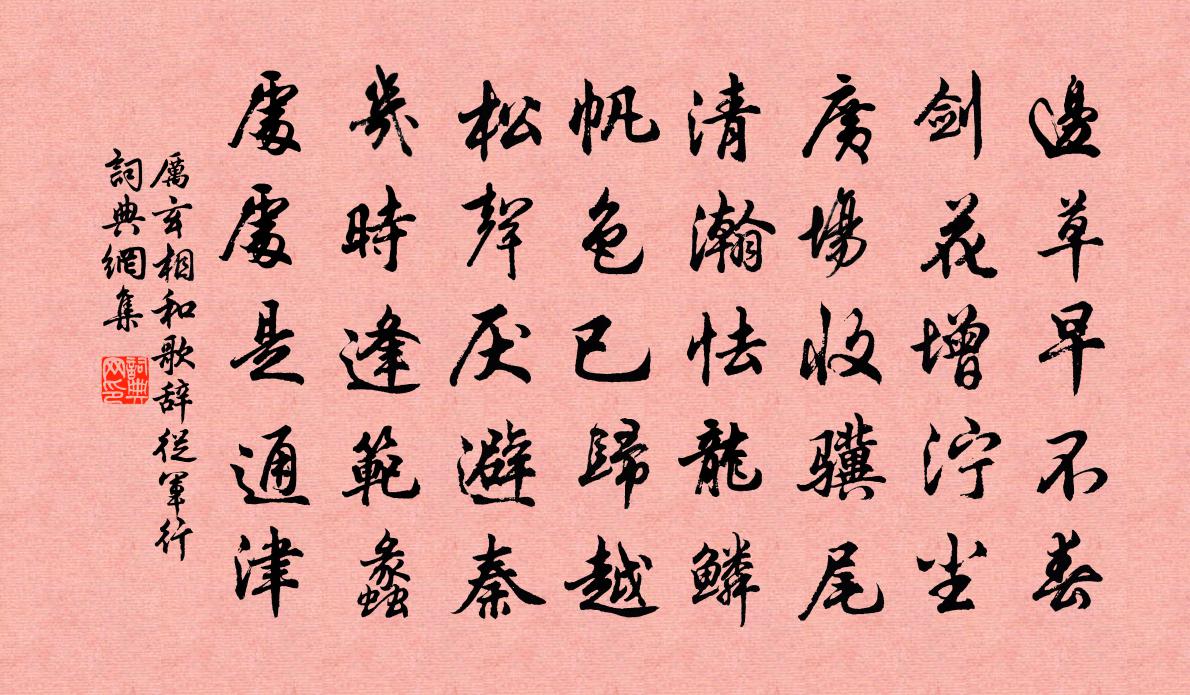 邊草早不春
剑花增泞尘
廣場收驥尾
清瀚怯龍鱗
帆色已歸越
松聲厌避秦
幾時逢範蠡
處處是通津
厲玄相和歌辞從軍行
詞典網集
詞典网印